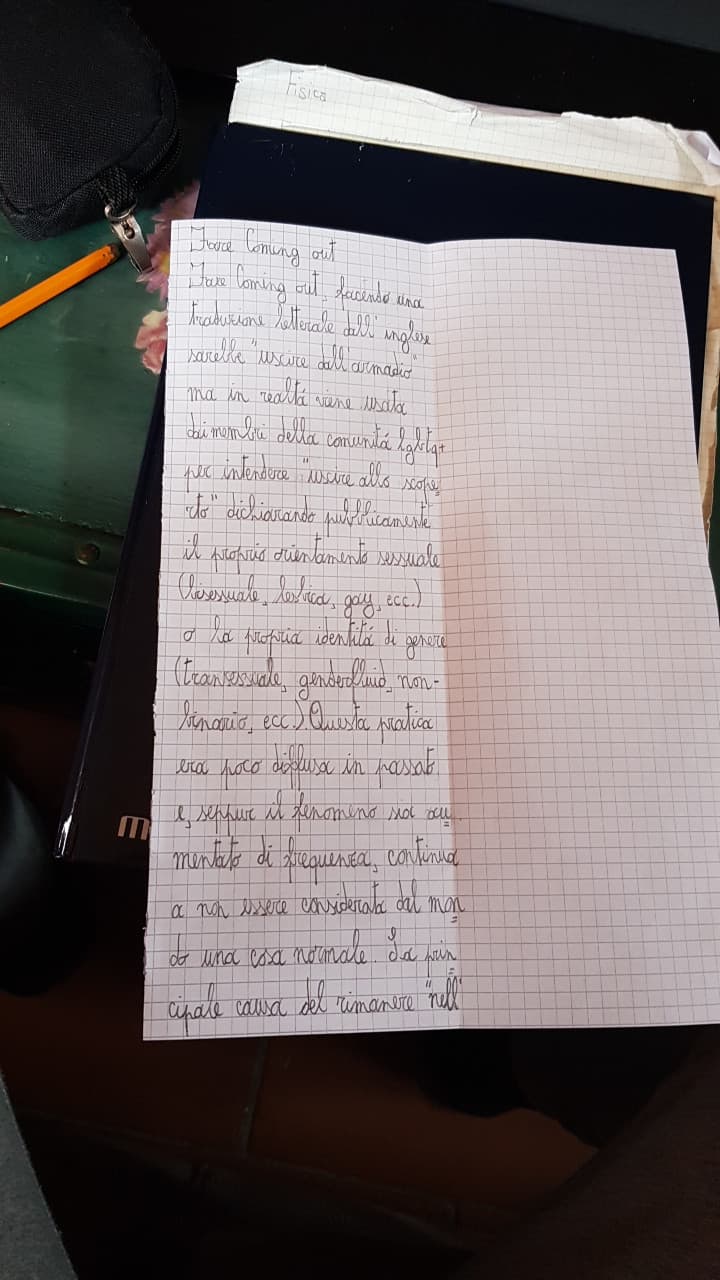 Fisica
Fare Coming out
Fare Coming out, facendo una
traduzione letterale dall'inglese
sarebbe "uscire dall'armadio"
ma in realtá viene usata
dai membri della comunitá lgbtq+
per intendere "uscire allo scope
rto" dichiarando pubblicamente
il proprio orientamento sessuale
(bisessuale, lesbica, gay, ecc.)
o la propria identitá di genere
(transessuale, genderfluid, non-
binario, ecc.). Questa pratica
era poco diffusa in passato
e, seppur il fenomeno sia au=
mentato di frequenza, continua
a non essere considerata dal mon=
do una cosa normale. La prin=
cipale causa del rimanere "nell'
m